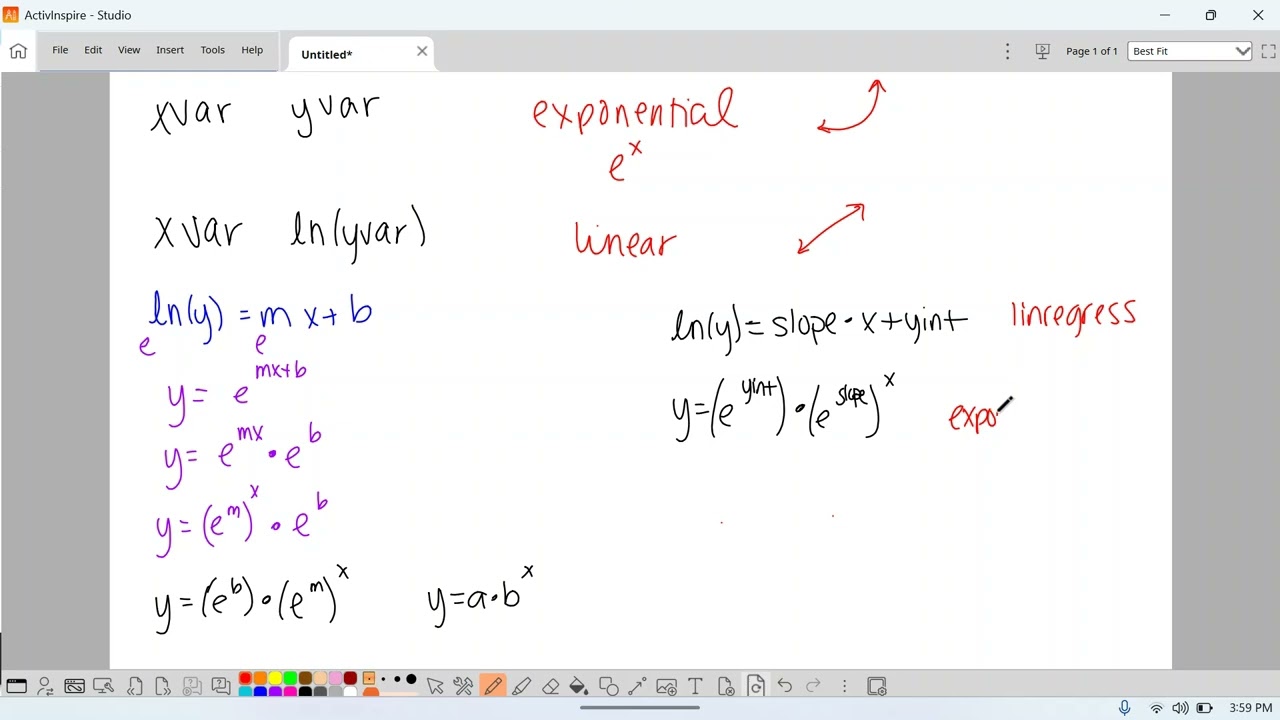 ActivInspire - Studio
File Edit View Insert Tools Help
Untitled*
Page 1 of 1
Best Fit
xvar yvar exponential
e^x
xvar ln(yvar) linear
ln(y) = mx+b
e e
y = e^{mx+b}
y = e^{mx} • e^b
y = (e^m)^x • e^b
y = (e^b) • (e^m)^x y = a • b^x
ln(y) = slope • x + yint linregress
y = (e^{yint}) • (e^{slope})^x expo
3:59 PM